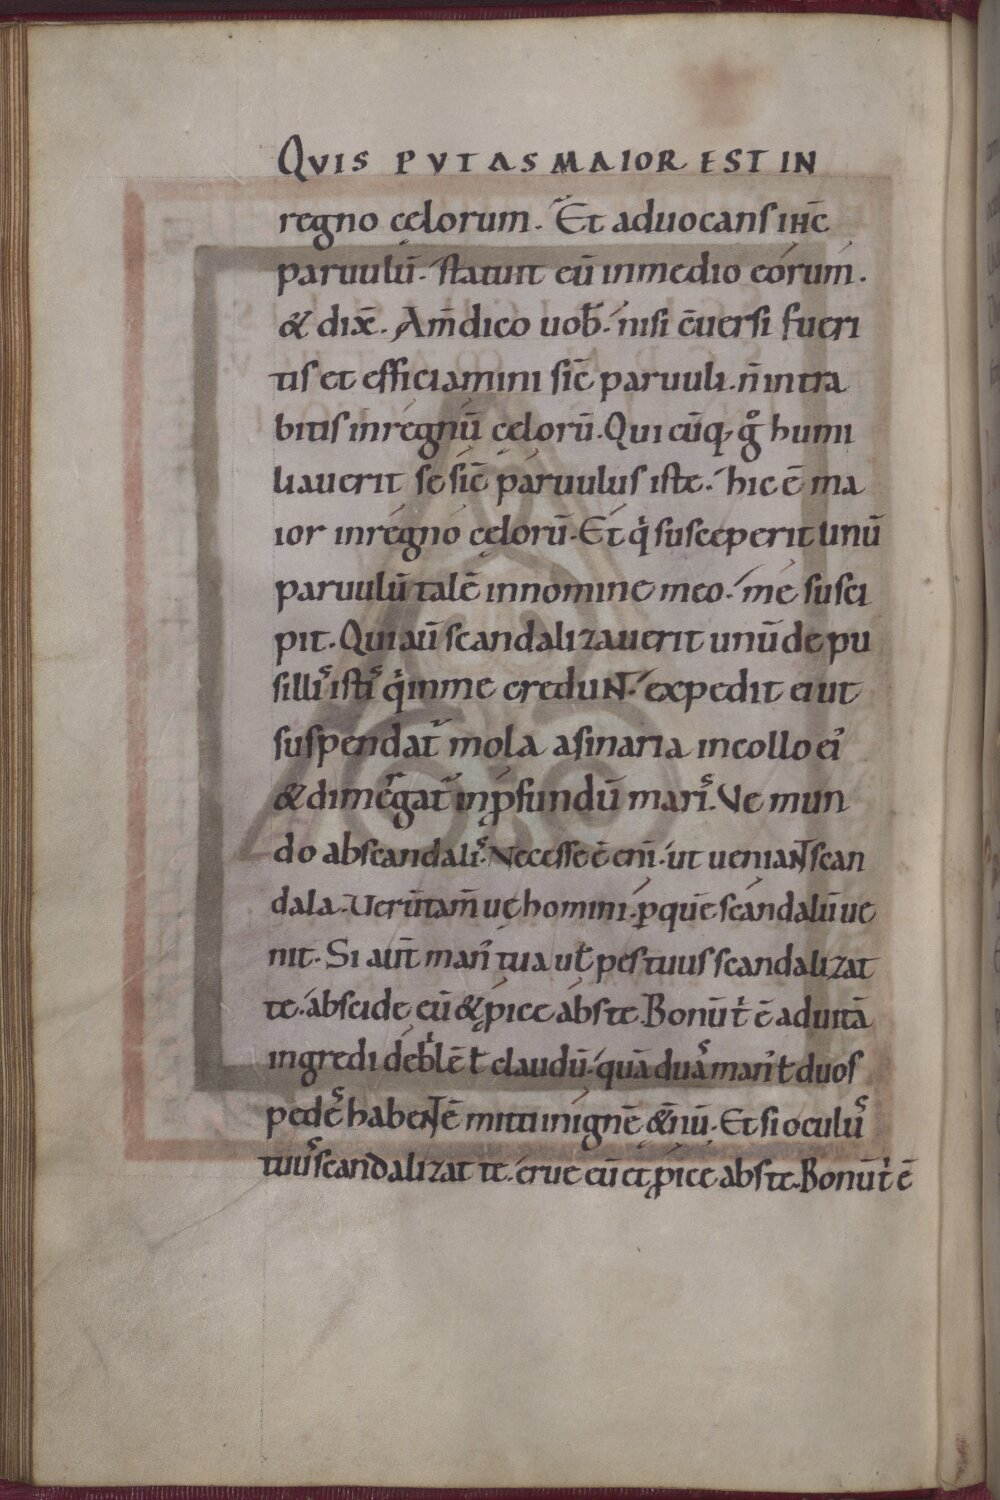 QVIS PVTAS MAIOR EST IN
regno cęlorum. Et aduocans ihc̄
paruulū. statuit eū in medio eorum.
& dix̄. Am̄ dico uob̄. nisi c̄uersi fueri
tis et efficiamini sic̄ paruuli. n̄ intra
bitis in regnū cęlorū. Qui cūq, gͦ humi
liauerit se sic̄ paruulus iste. hic ē ma
ior in regno cęlorū. Et qͥ susceperit unū
paruulū talē in nomine meo. me susci
pit. Qui aū scandalizauerit unū de pu
sillis istis qͥ in me credunt. expedit ei ut
suspendat᷑ mola asinaria in collo ei᾽
& dimergat᷑ in ꝓfundū maris. Vę mun
do ab scandalis. Necesse ē eni̅. ut ueniant scan
dala. Uerūtam̄ uę homini. ꝑ quē scandalū ue
nit. Si aut̄ man᾽ tua ut̄ pes tuus scandalizat
te. abscide eū & ꝓice abs te. Bonū tͥ ē ad uitā
ingredi deb̄ilē t̄ claudū. quā duas man᾽ t̄ duos
pedes habentē mitti in ignē &̄nū. Et si oculus
tuus scandalizat te. erue eū et ꝓice abs te. Bonū tͥ ē